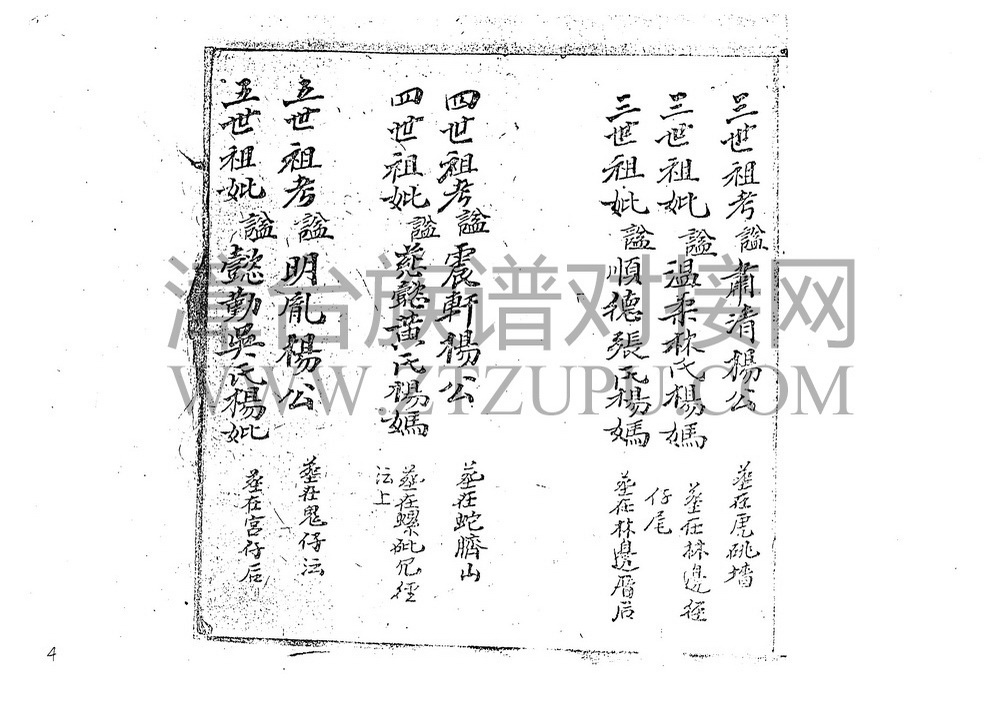 三世祖考謚肅清楊公 葬在虎硗墻
三世祖妣謚温柔林氏楊媽 葬在林邊徑
仔尾
三世祖妣謚順德張氏楊媽 葬在林邊厝后
四世祖考謚震軒楊公 葬在蛇臍山
四世祖妣謚慈懿黄氏楊媽 葬在螺砒 徑
沄上
五世祖考謚明胤楊公 葬在鬼仔沄
五世祖妣謚懿勤吳氏楊妣 葬在宮仔后
台族谱对接网
WWW.ZTZUPU.COM
4